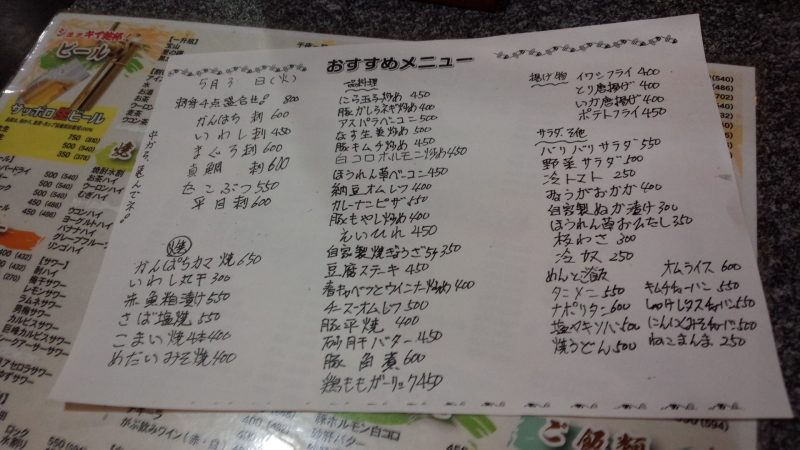 おすすめメニュー
5月3日(火)
刺身4点盛合せ 800
かんぱち刺 600
いわし刺 450
まぐろ刺 600
真鯛刺 600
たこぶつ 550
平目刺 600
焼
かんぱちカマ焼 650
いわし丸干 300
赤魚粕漬け 650
さば塩焼 550
こまい焼4本 400
めだいみそ焼 400
一品料理
にら玉子炒め 450
豚かしらネギ炒め 400
アスパラベーコン 500
なす生姜炒め 500
豚キムチ炒め 450
白コロホルモン炒め 450
ほうれん草ベーコン 450
納豆オムレツ 400
カレーナンピザ 450
豚もやし炒め 400
えいひれ 450
豆腐ステーキ 450
春キャベツとウインナー炒め 400
チーズオムレツ 500
豚平焼 400
砂肝バター 450
豚角煮 600
鶏ももガーリック 450
揚げ物
イワシフライ 400
とり唐揚げ 400
いか唐揚げ 400
ポテトフライ 450
サラダ・その他
バリバリサラダ 550
野菜サラダ 500
冷トマト 250
みょうがおかか 400
自家製ぬか漬け 300
ほうれん草おひたし 350
板わさ 300
冷奴 250
めんとご飯
タンメン 550
ナポリタン 600
塩ヤキソバ 500
焼うどん 500
オムライス 600
キムチチャーハン 550
しゃけレタスチャーハン 550
にんにくみそチャーハン 550
ねこまんま 250
ビール
サッポロ生ビール
ウーロンハイ
ヨーグルトハイ
バナナハイ
グレープフルーツ
リンゴハイ
【サワー】
レモンサワー
ラムネサワー
男梅サワー
カルピスサワー
巨峰カルピスサワー
シークアーサーサワー
がぶ飲みワイン(赤・白)
豚ホルモン白コロ
砂肝バター
ご飯類